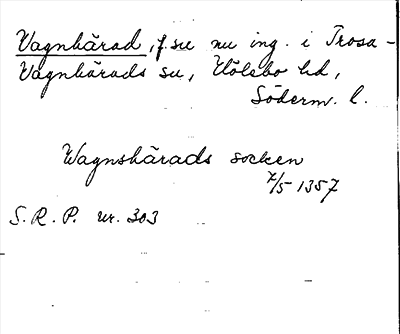 Vagnhärad, f. sn nu ing. i Trosa-
Vagnhärads sn, Hölebo hd,
Söderm. l.
Wagnshärads socken
7/5 1357
S.R.P. nr. 303